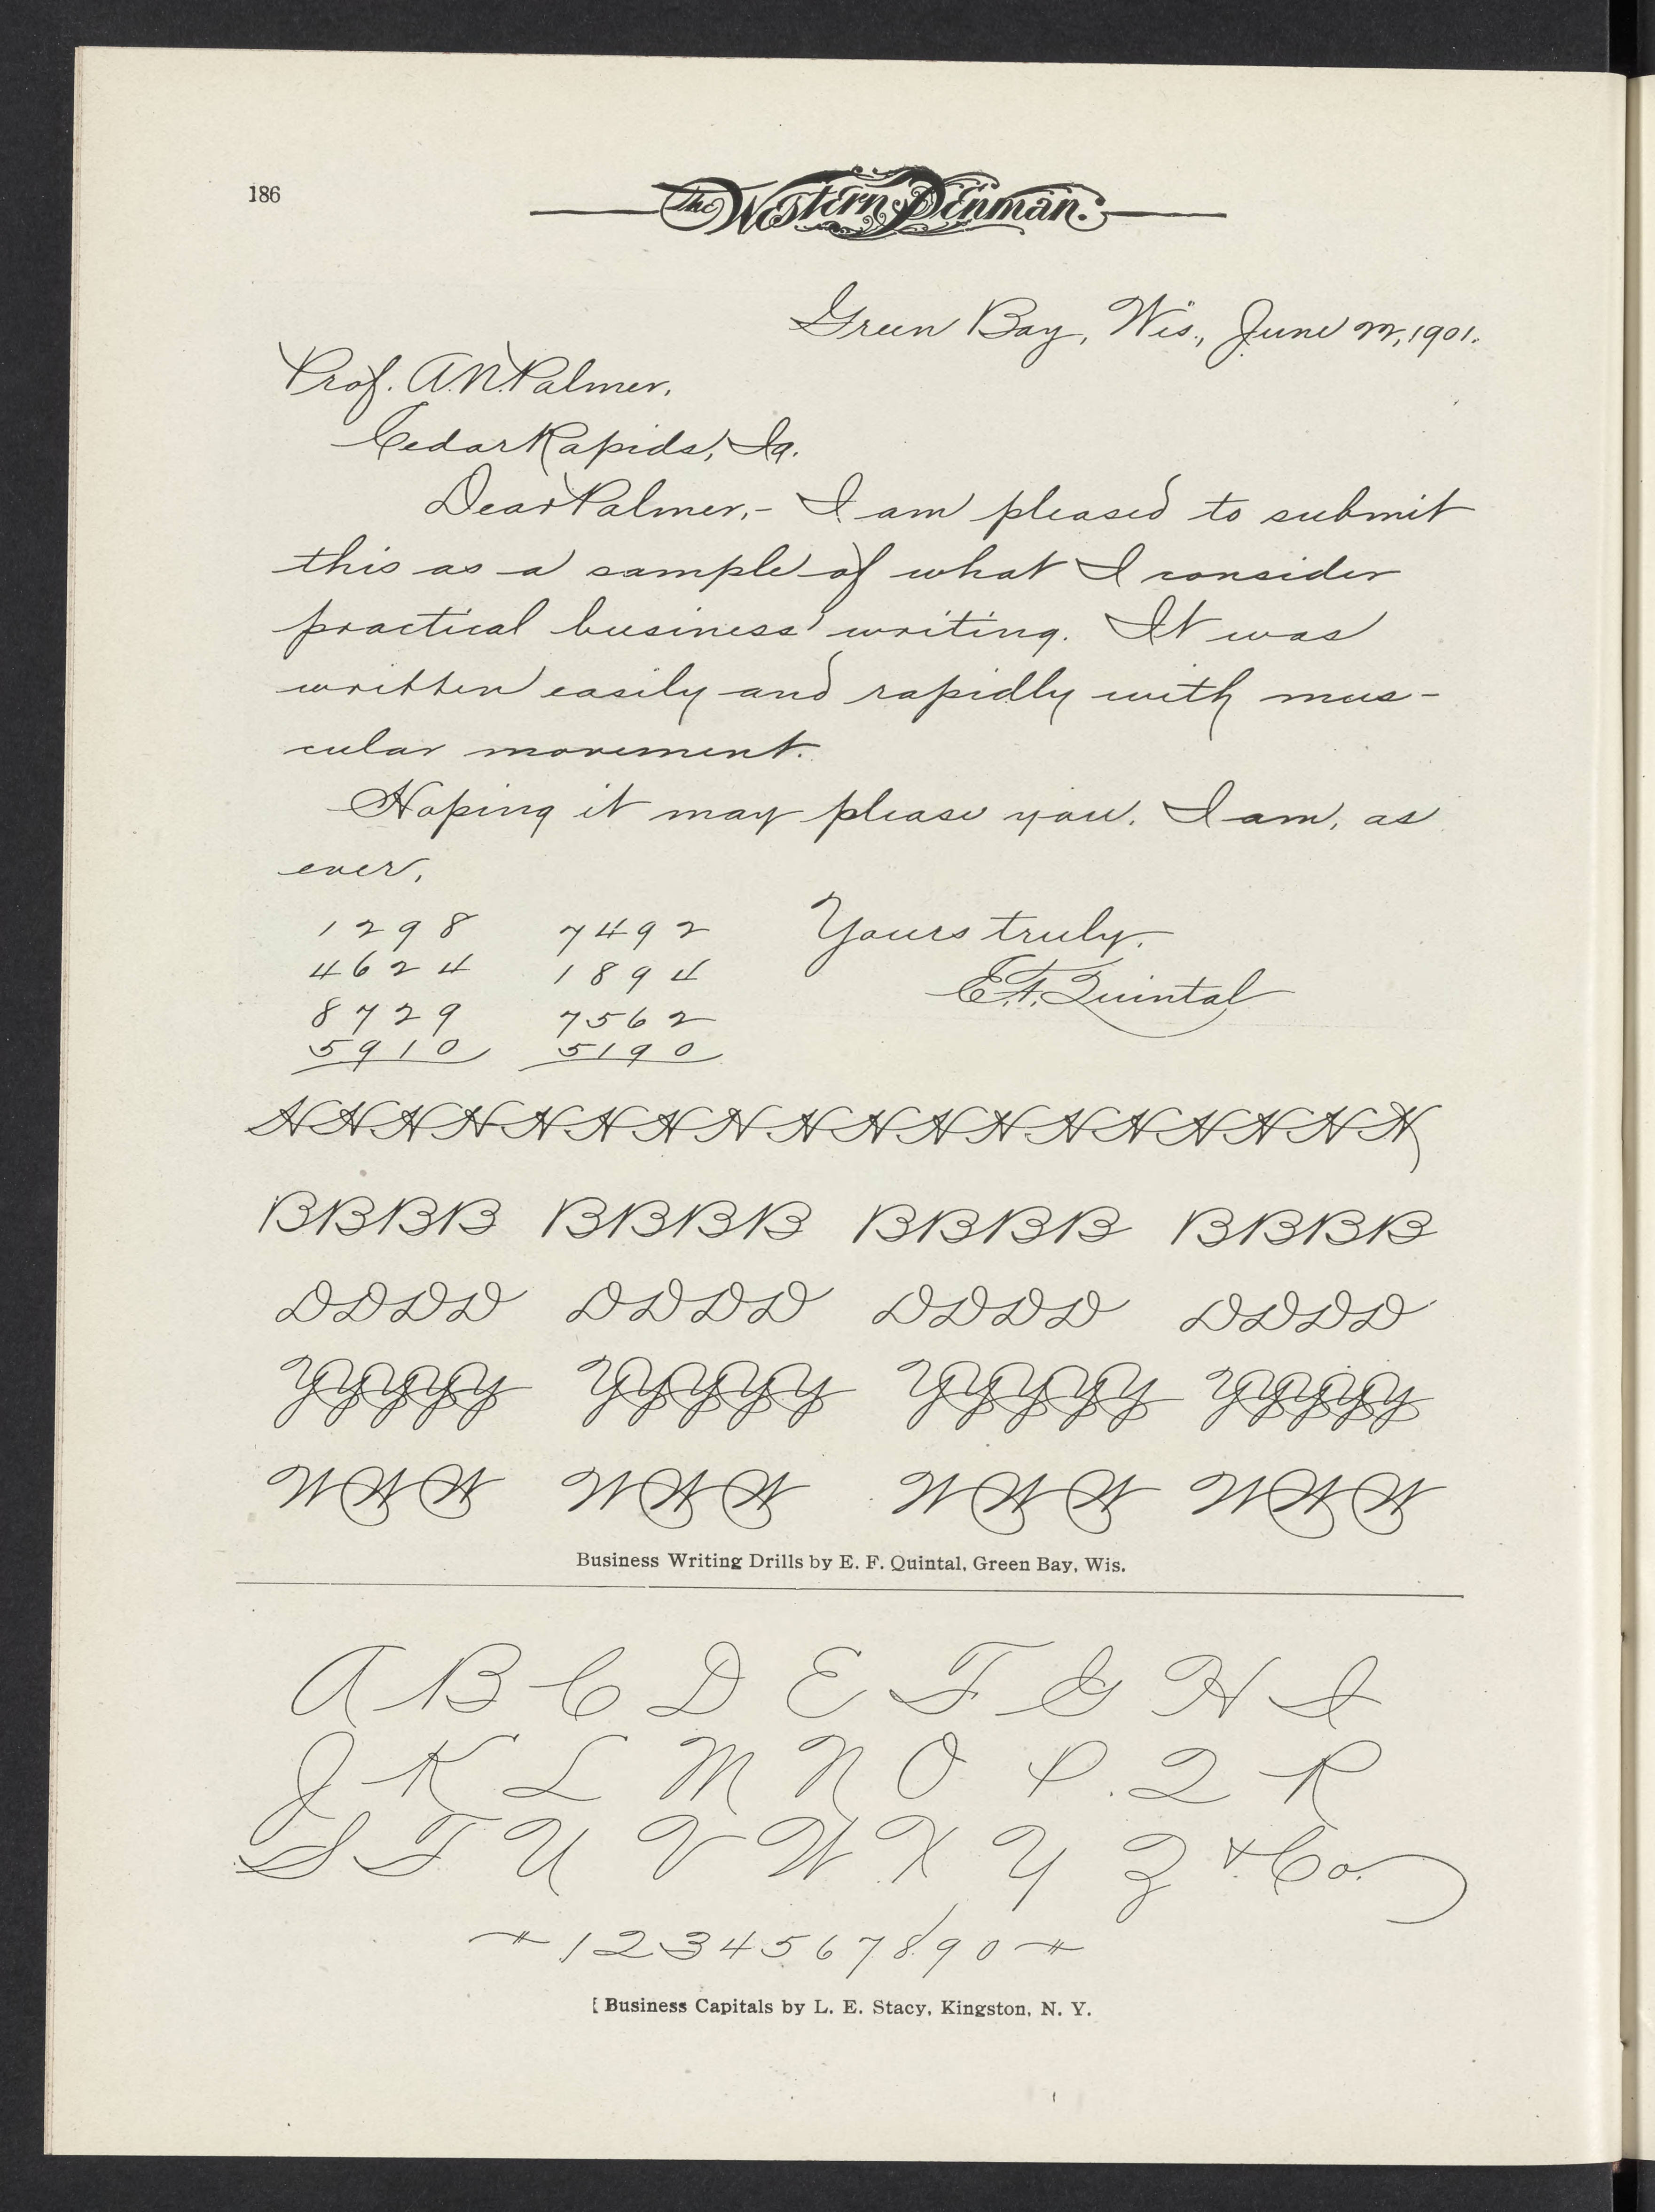 186
The Western Penman.
Green Bay, Wis., June 22, 1901.
Prof. A.N. Palmer,
Cedar Rapids, Ia.
Dear Palmer,- I am pleased to submit
this as a sample of what I consider
practical business writing. It was
written easily and rapidly with mus-
cular movement.
Hoping it may please you. I am, as
ever,
1298 7492
4624 1894
8729 7562
5910 5190
Yours truly,
E.F. Quintal
N N N N N N N N N N N N N N N N N
BBBB BBBB BBBB BBBB
DDDD DDDD DDDD DDDD
YYYYY YYYYY YYYYY YYYYY
WWW WWW WWW WWW
Business Writing Drills by E. F. Quintal, Green Bay, Wis.
A B C D E F G H I
J K L M N O P. Q R
S T U V W X Y Z & Co.
1 2 3 4 5 6 7 8 9 0
[ Business Capitals by L. E. Stacy, Kingston, N. Y.